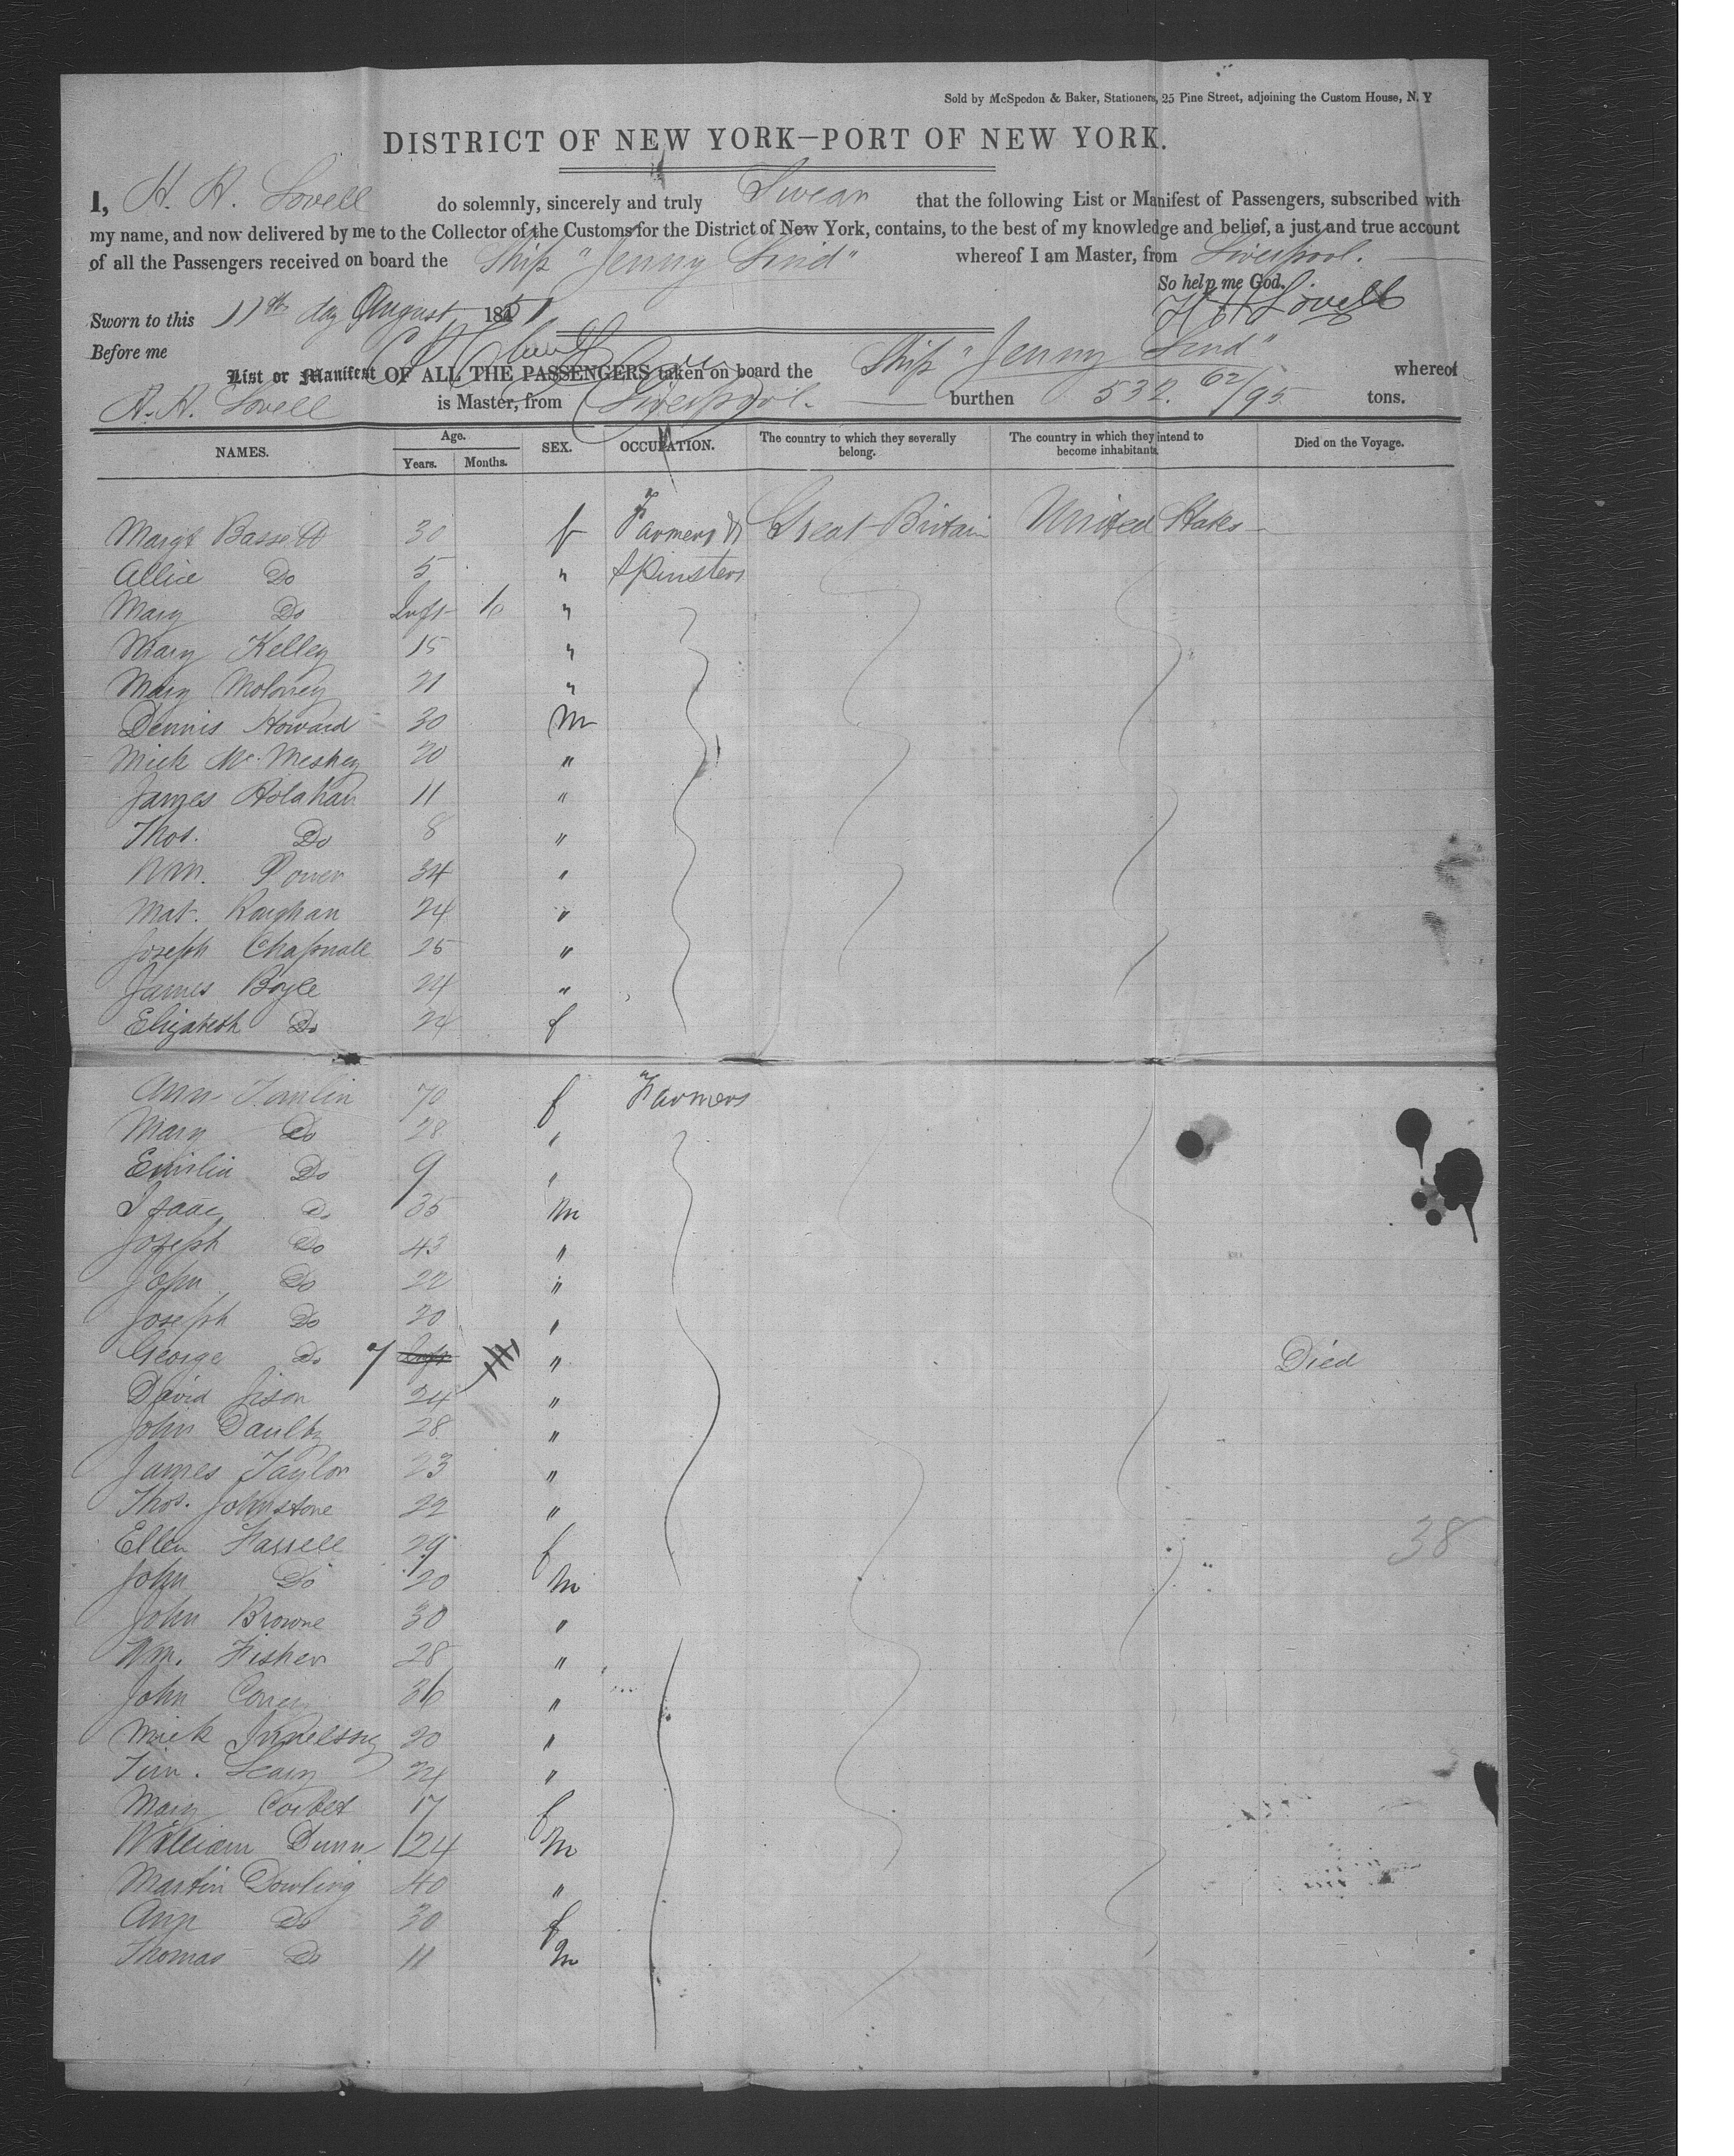 Sold by McSpedon & Baker, Stationers, 25 Pine Street, adjoining the Custom House, N. Y
DISTRICT OF NEW YORK—PORT OF NEW YORK.
I, H. H. Lovell do solemnly, sincerely and truly Swear that the following List or Manifest of Passengers, subscribed with
my name, and now delivered by me to the Collector of the Customs for the District of New York, contains, to the best of my knowledge and belief, a just and true account
of all the Passengers received on board the Ship "Jenny Lind" whereof I am Master, from Liverpool.
So help me God.
Sworn to this 11th day August 1851 H H Lovell
Before me
List or Manifest OF ALL THE PASSENGERS taken on board the Ship "Jenny Lind" whereof
H. H. Lovell is Master, from Liverpool. burthen 532. 62/95 tons.
NAMES. Age. Years. Months. SEX. OCCUPATION. The country to which they severally belong. The country in which they intend to become inhabitants. Died on the Voyage.
Margt Bassett 30 f Farmers & Great Britain United States
Allice Do 5 " Spinsters
Mary Do Inft 10 "
Mary Kelley 15 "
Mary Moloney 21 "
Dennis Howard 30 M
Mick Mc 20 "
James Holahan 11 "
Thos. Do 8 "
Wm. Power 34 "
Mat. Roughan 24 "
Joseph 25 "
James Boyle 24 "
Elizabeth Do 24 f
Ann Tomlin 70 f Farmers
Mary Do 28 "
Do 9 "
Isaac Do 35 M
Joseph Do 43 "
John Do 22 "
Joseph Do 20 "
George Do 7 Inft " Died
David 24 "
John Daulby 28 "
James Taylor 23 "
Thos. Johnstone 22 "
Ellen Farrell 29 f 38
John Do 20 M
John Browne 30 "
Wm. Fisher 28 "
John 36 "
Mick 20 "
Tim. Leary 24 "
Mary Corbet 17 f
William Dunn 24 M
Martin Dowling 40 "
Ann Do 30 f
Thomas Do 11 M